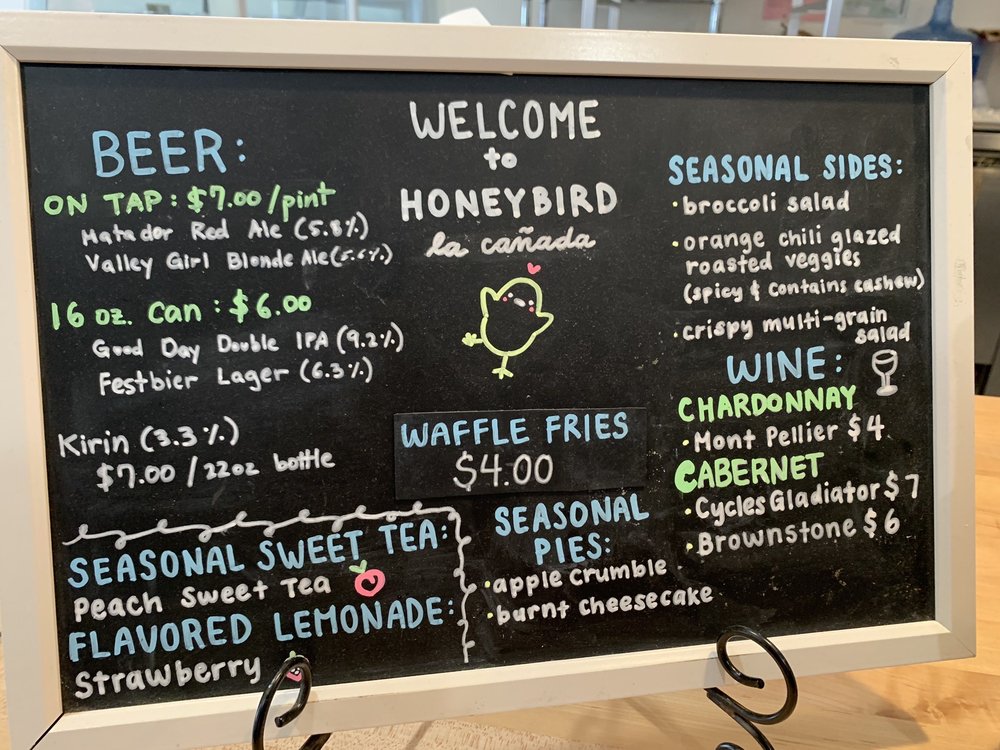 WELCOME
to
HONEYBIRD
la cañada
BEER:
ON TAP: $7.00/pint
Matador Red Ale (5.8%)
Valley Girl Blonde Ale (5.6%)
16 oz. Can: $6.00
Good Day Double IPA (9.2%)
Festbier Lager (6.3%)
Kirin (3.3%)
$7.00/22oz bottle
SEASONAL SWEET TEA:
Peach Sweet Tea
FLAVORED LEMONADE:
Strawberry
WAFFLE FRIES
$4.00
SEASONAL
PIES:
•apple crumble
•burnt cheesecake
SEASONAL SIDES:
•broccoli salad
•orange chili glazed
roasted veggies
(spicy & contains cashew)
•crispy multi-grain
salad
WINE:
CHARDONNAY
•Mont Pellier $4
CABERNET
•Cycles Gladiator $7
•Brownstone $6